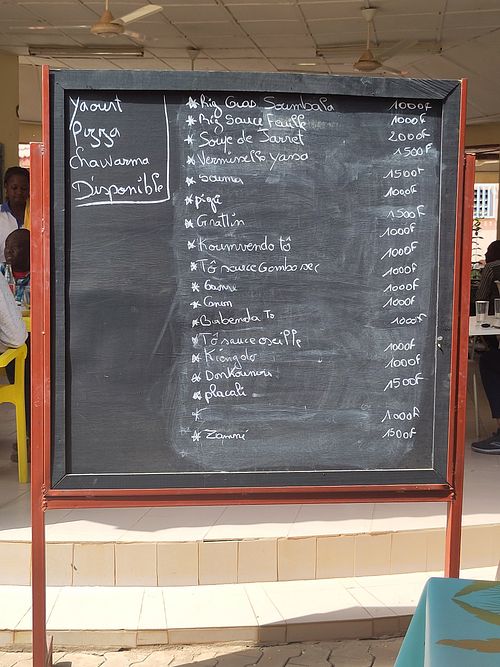 Yaourt
Pizza
Chawarma
Disponible
* Rig Gras Soumbala 1000F
* Rig Sauce Feuille 1000F
* Soupe de Jarret 2000F
* Vermiselle yansa 1500F
* soumu 1500F
* piqé 1000F
* Grattin 1500F
* Koumvendo tô 1000F
* Tô sauce Gombo sec 1000F
* Gasnre 1000F
* Canem 1000F
* Babenda To 1000F
* Tô sauce oseille 1000F
* Kiengolo 1000F
* Donkounou 1500F
* placali
* 1000F
* Zamnè 1500F